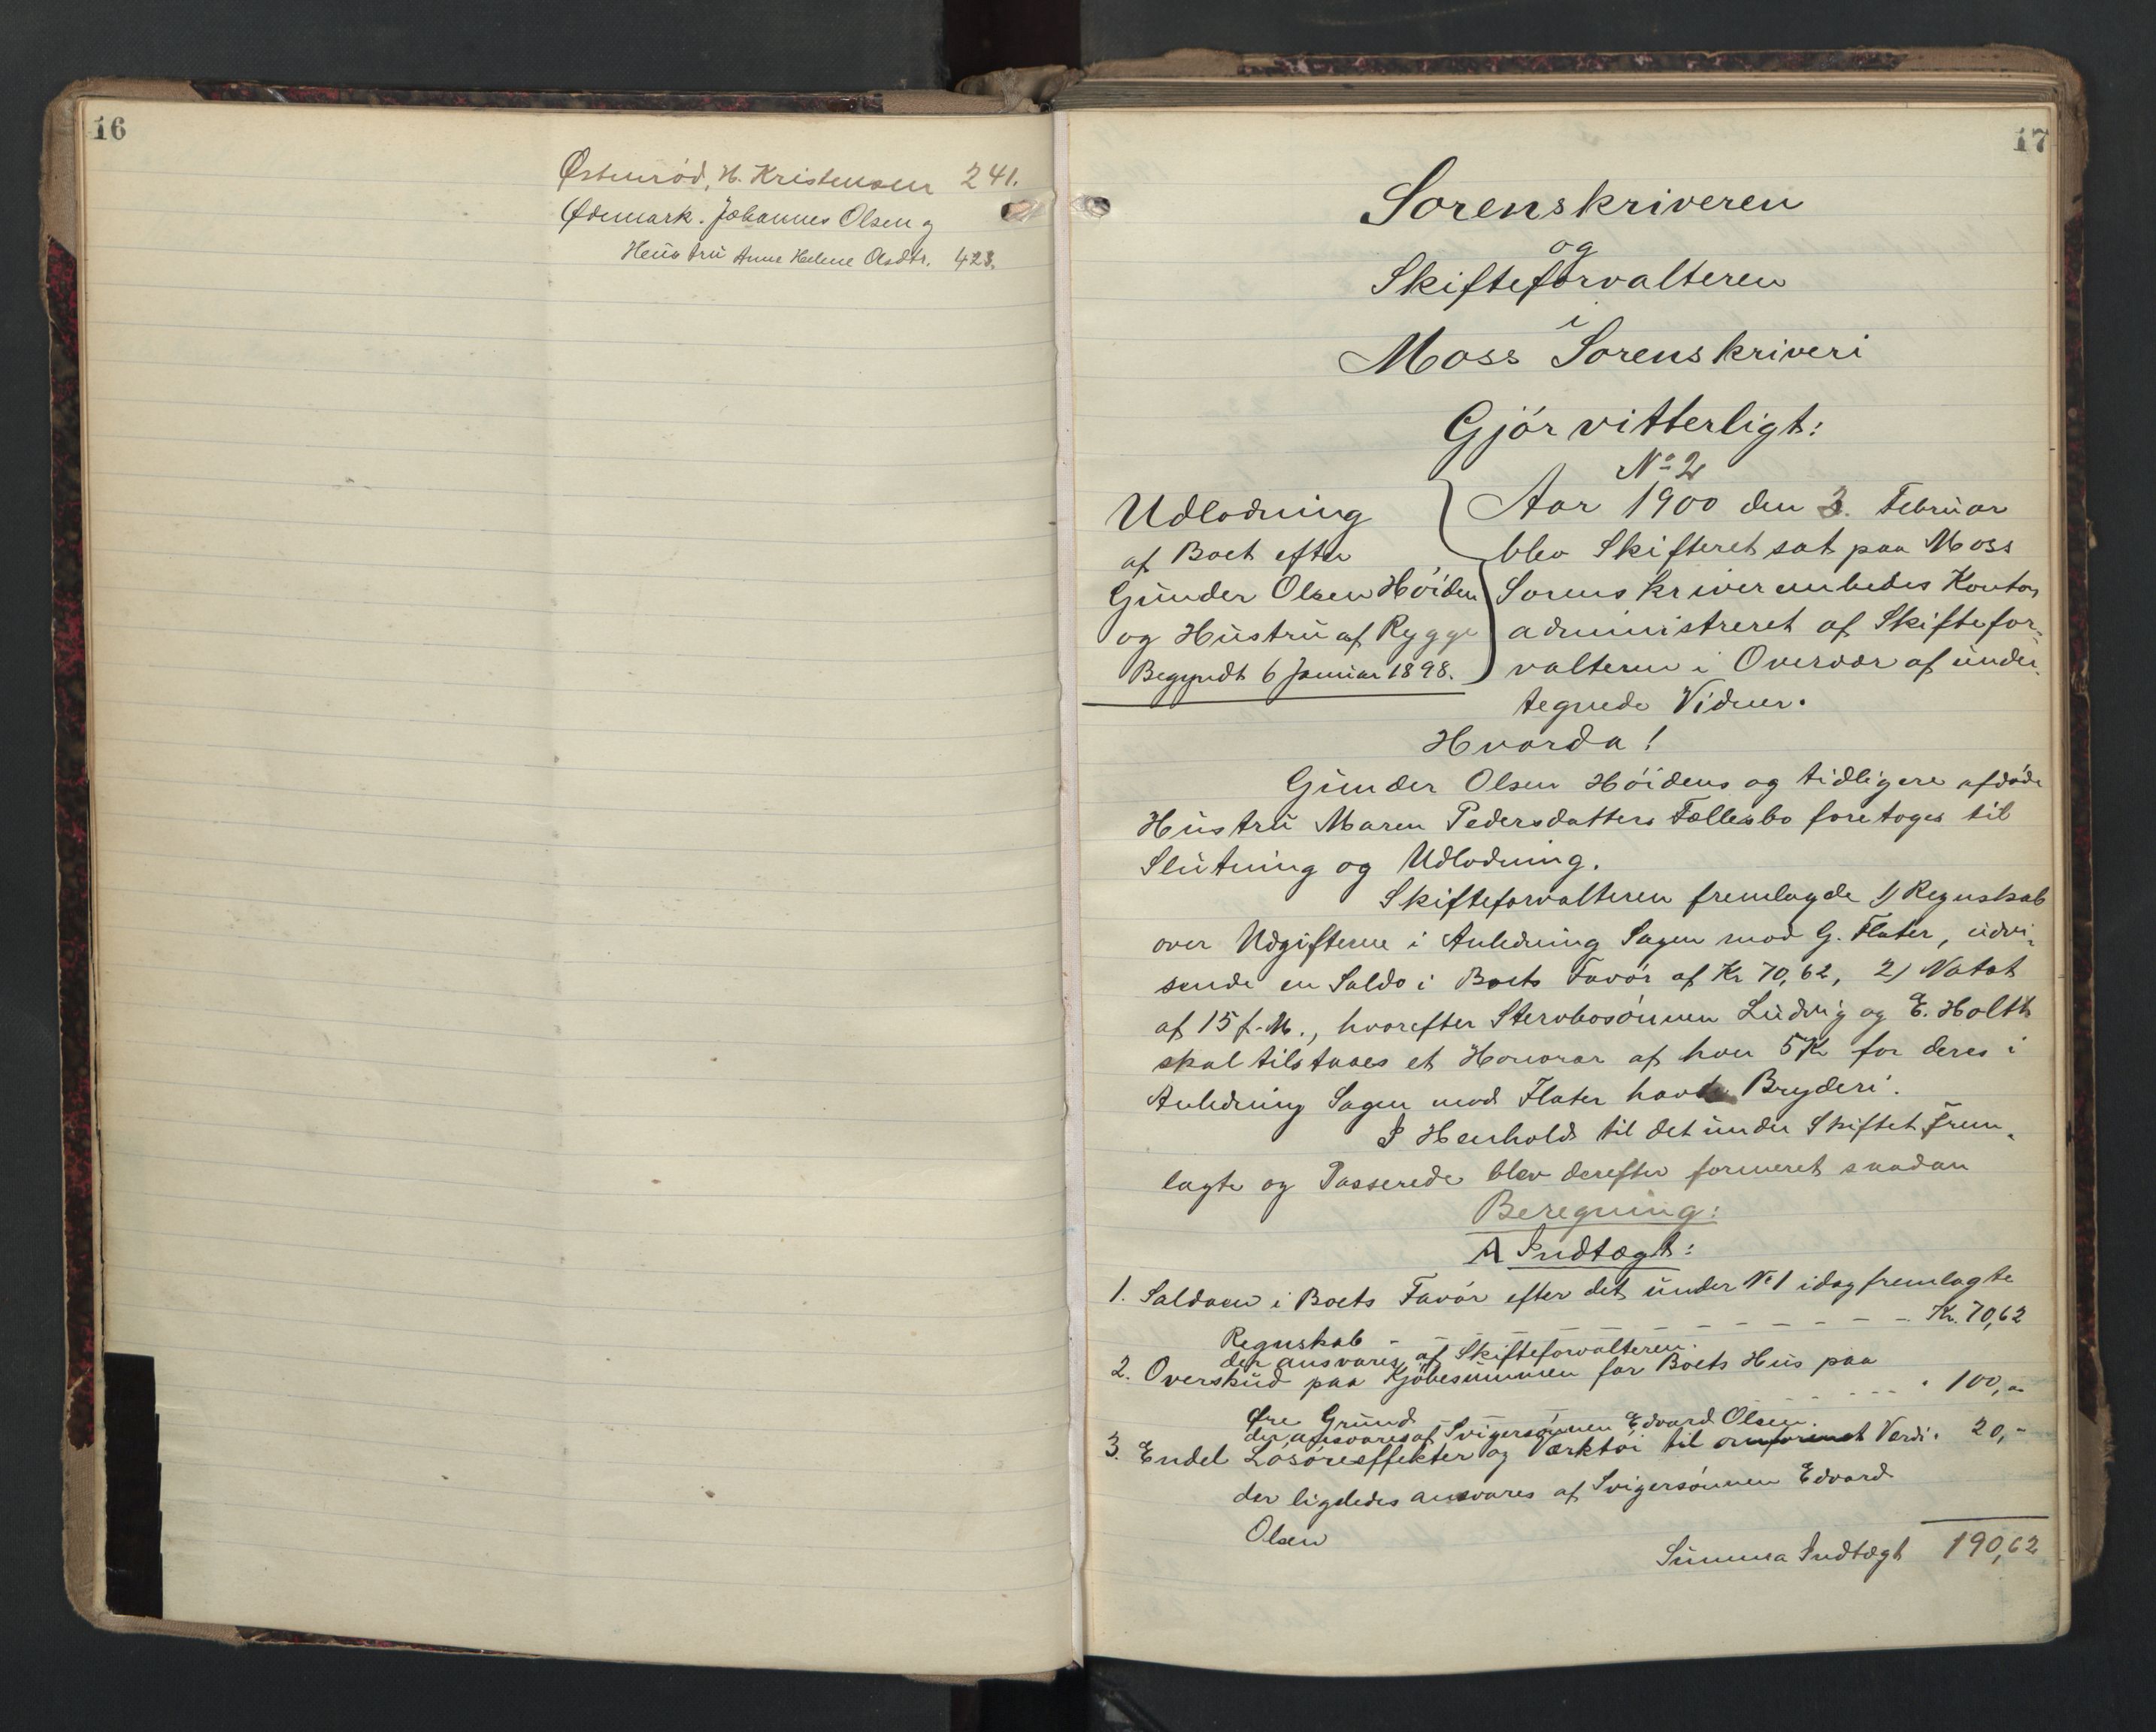 16
Østenród, H. Kristensen 241.
Ødemark. Johannes Olsen og
Hustru Anne Helene Olsdtr. 423.
17
Sorenskriveren
og
Skifteforvalteren
i
Moss Sorenskriveri
Gjór vitterligt:
No 2
Udlodning
af Boet efter
Gunder Olsen Hóiden
og Hustru af Rygge
Begyndt 6 Januar 1898.
Aar 1900 den 3. Februar
blev Skifteret sat paa Moss
Sorenskriverembedes Kontor
administreret af Skiftefor-
valteren i Overvær af under-
tegnede Vidner.
Hvorda!
Gunder Olsen Hóidens og tidligere afdóde
Hustru Maren Pedersdatters Fællesbo foretoges til
Slutning og Udlodning.
Skifteforvalteren fremlagde 1) Regnskab
over Udgifterne i Anledning Sagen mod G. Flater, udvi-
sende en Saldo i Boets Favór af Kr 70,62, 2) Notat
af 15 f. M., hvorefter Stervbosónnen Ludvig og E. Holth
skal tilstaaes et Honorar af hver 5 Kr for deres i
Anledning Sagen mod Flater havte Bryderi.
I Henhold til det under Skiftet frem-
lagte og Passerede blev derefter formeret saadan
Beregning:
A Indtægt:
1. Saldoen i Boets Favór efter det under No 1 idag fremlagte
Regnskab - - - - - - - - - - Kr. 70,62
der ansvares af Skifteforvalteren.
2. Overskud paa Kjóbesummen for Boets Hus paa
Øre Grund - - - - - - " 100,-
der ansvares af Svigersónnen Edvard Olsen.
3. Endel Lósóreeffekter og Værktói til Værdi " 20,-
der ligeledes ansvares af Svigersónnen Edvard
Olsen
Summa Indtægt 190,62